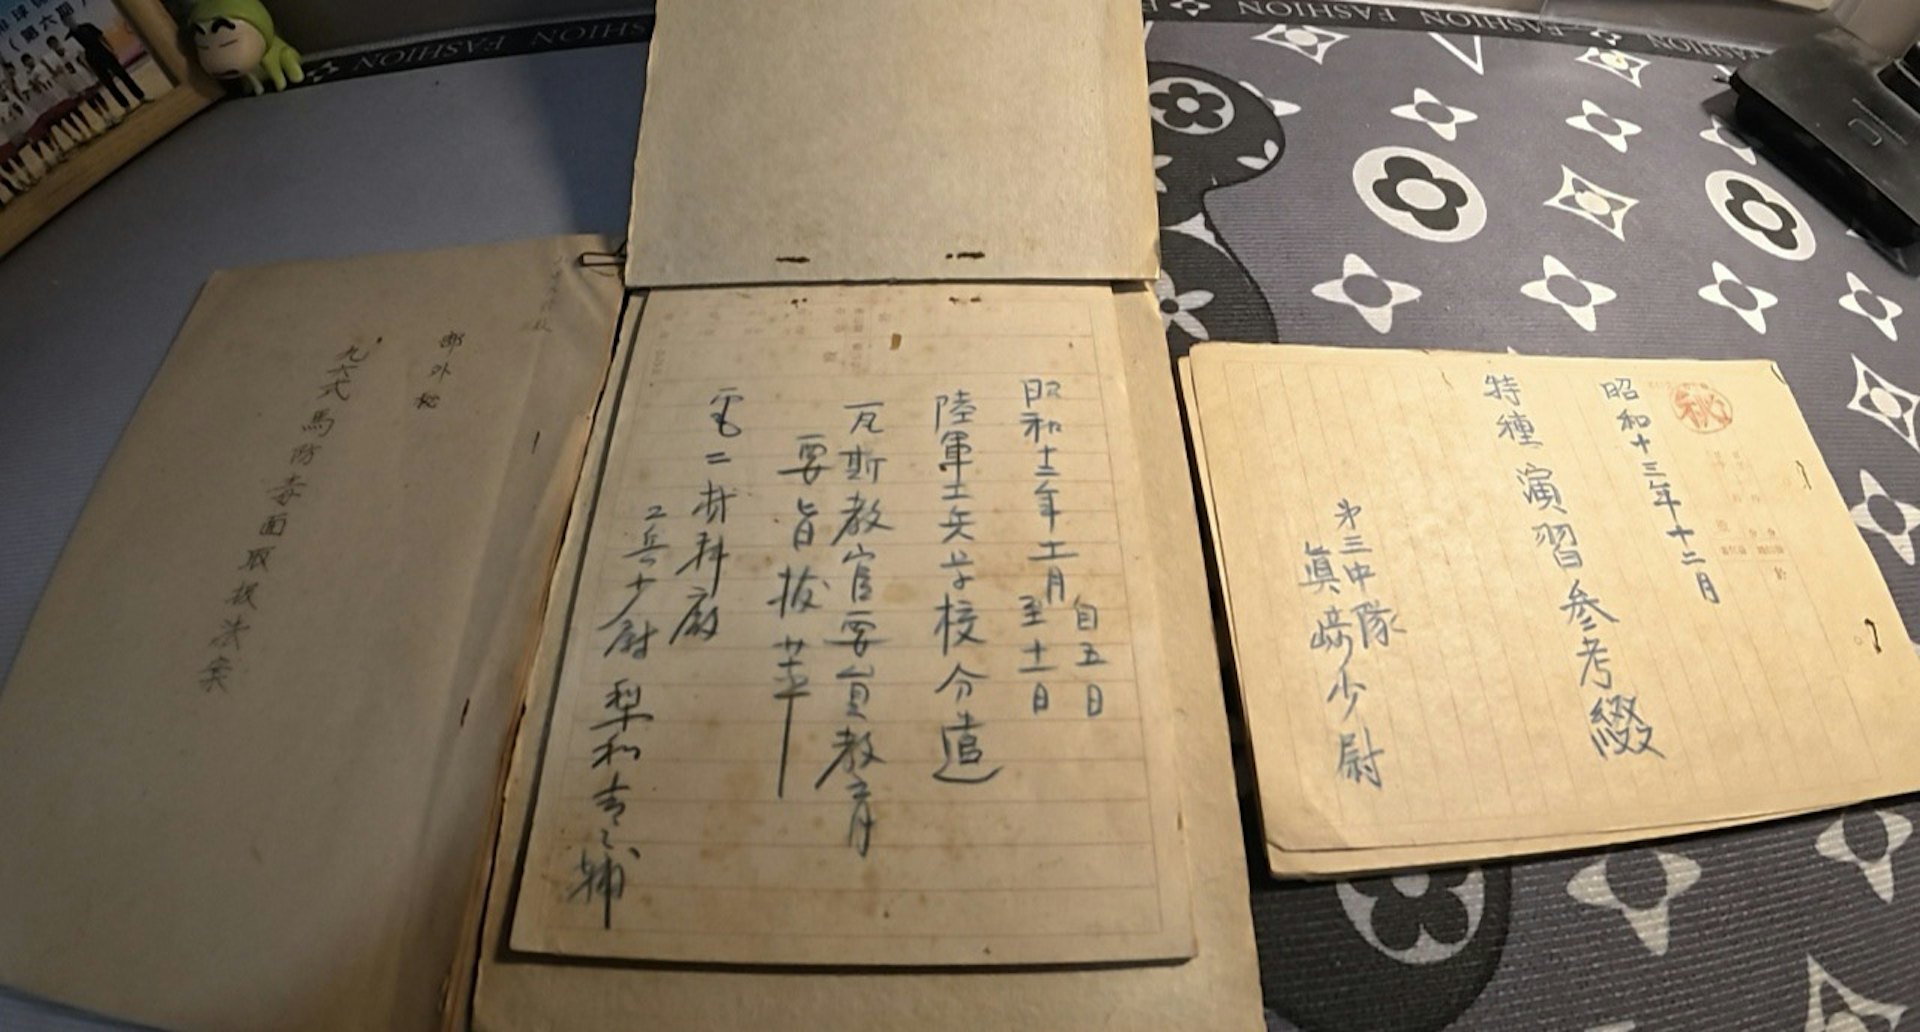 部外秘
九六式馬防毒面取扱法案
昭和十二年十一月
自五日
至十一日
陸軍工兵学校分遣
瓦斯教官要員教育
要旨抜萃
電二材料廠
工兵少尉
秘
昭和十三年十二月
特種演習参考綴
第三中隊
眞﨑少尉
FASHION FASHION
FASHION FASHION FASHION
(第六期